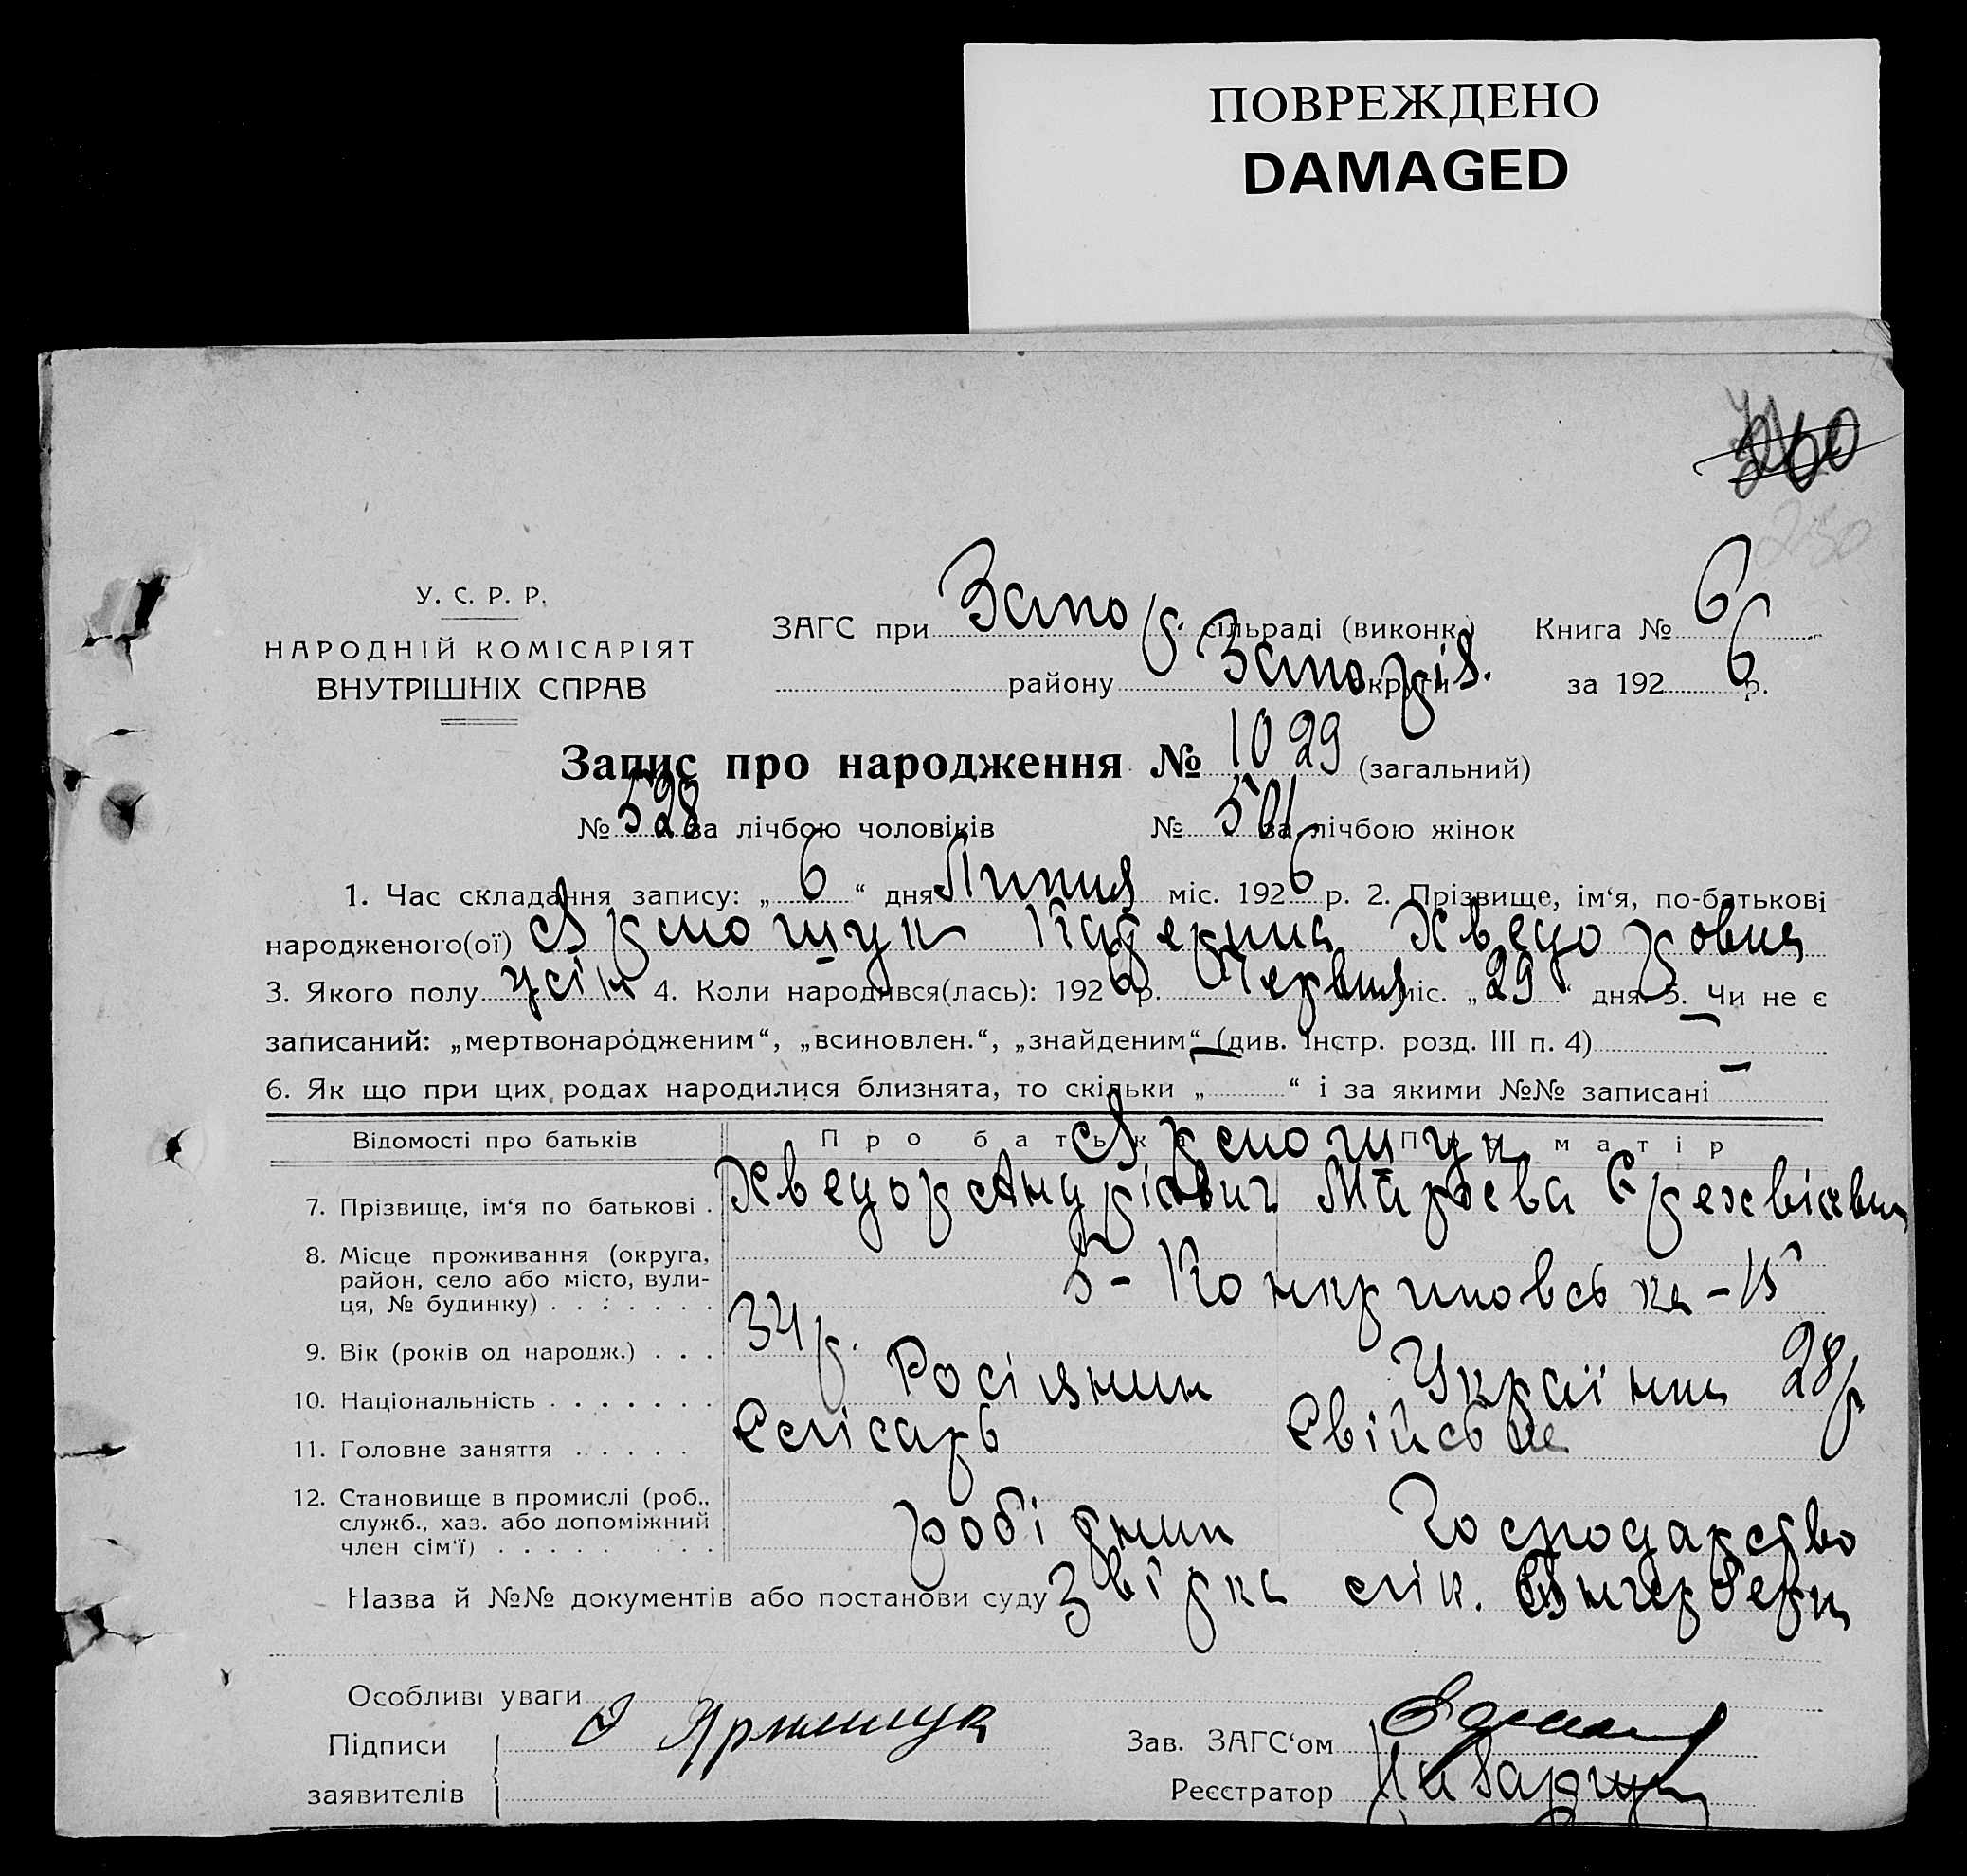 ПОВРЕЖДЕНО
DAMAGED
У. С. Р. Р.
НАРОДНІЙ КОМІСАРІЯТ
ВНУТРІШНІХ СПРАВ
ЗАГС при Запор. сільраді (виконк.) Книга № 6
району Запоріз. округи за 192 6 р.
Запис про народження № 1029 (загальний)
№ 528 за лічбою чоловіків № 501 за лічбою жінок
1. Час складання запису: „ 6 “ дня Липня міс. 192 6 р. 2. Прізвище, ім‘я, по-батькові
народженого(ої) Ярмощук Катерина Хведоровна
3. Якого полу жін 4. Коли народився(лась): 192 6 р. Червня міс. „ 29 “ дня. 5. Чи не є
записаний: „мертвонародженим“, „всиновлен.“, „знайденим“ (див. Інстр. розд. III п. 4) —
6. Як що при цих родах народилися близнята, то скільки „ — “ і за якими №№ записані —
Відомості про батьків Про батька Про матір
Ярмощук
7. Прізвище, ім‘я по батькові . Хведор Андрієвич
8. Місце проживання (округа,
район, село або місто, вули-
ця, № будинку) . . . . . . . 15
9. Вік (років од народж.) . . . 34 р. 28 р
10. Національність . . . . . . . Росіянин Українка
11. Головне заняття . . . . . Слісарь Свійське
12. Становище в промислі (роб.,
служб., хаз. або допоміжний
член сім‘ї) . . . . . . . . робітник Господарство
Назва й №№ документів або постанови суду Звірка лік.
Особливі уваги
Підписи Ярмощук Зав. ЗАГС‘ом
заявителів Реєстратор